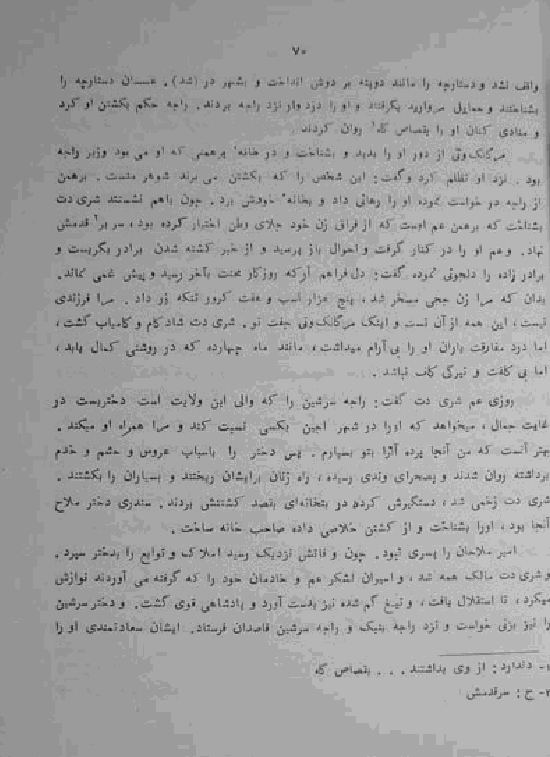 ۷۰
واقف نشد و دستارچه را مانند دوپته بر دوش انداخت و بشهر در (شد). عسسان دستارچه را
بشناختند و حمایل مروارید بگرفتند و او را دزد وار نزد راجه بردند. راجه حکم بکشتن او کرد
و منادی کنان او را بقصاص گاه۱ روان کردند.
مرگانک وتی از دور او را بدید و بشناخت و در خانه برهمنی که او می بود وزیر راجه
بود. نزد او تظلم کرد و گفت: این شخص را که بکشتن می برند شوهر منست. برهمن
از راجه در خواست نموده او را رهائی داد و بخانه خودش برد. چون باهم نشستند شری دت
بشناخت که برهمن عم اوست که از فراق زن خود جلای وطن اختیار کرده بود، سر بر۲ قدمش
نهاد. و عم او را در کنار گرفت و احوال باز پرسید و از خبر کشته شدن برادر بگریست و
برادر زاده را دلجوئی نموده گفت: دل فراهم آر که روزگار محنت بآخر رسید و بیش غمی نماند.
بدان که مرا زن جحی مسخر شد، پنج هزار اسپ و هفت کرور تنکه زر داد. مرا فرزندی
نیست، این همه از آن تست و اینک مرگانک وتی جفت تو. شری دت شاد کام و کامیاب گشت،
اما درد مفارقت یاران او را بی آرام میداشت، مانند ماه چهارده که در روشنی کمال یابد،
اما بی کلفت و تیرگی کلف نباشد.
روزی عم شری دت گفت: راجه سرشین را که والی این ولایت است دختریست در
غایت جمال، میخواهد که او را در شهر اجین بکسی نسبت کند و مرا همراه او میکند.
بهتر آنست که من آنجا برده آنرا بتو بسپارم. پس دختر را باسباب عروس و حشم و خدم
برداشته روان شدند و بصحرای وندی رسیده، راه زنان برایشان ریختند و بسیاران را بکشتند.
شری دت زخمی شد، دستگیرش کرده در بتخانه ای بقصد کشتنش بردند. سندری دختر ملاح
آنجا بود، او را بشناخت و از کشتن خلاصی داده صاحب خانه ساخت.
امیر ملاحان را پسری نبود. چون وفاتش نزدیک رسید املاک و توابع را بدختر سپرد.
و شری دت مالک همه شد، و اسیران لشکر عم و خادمان خود را که گرفته می آوردند نوازش
میکرد، تا استقلال یافت، و تیغ گم شده نیز بدست آورد و پادشاهی قوی گشت. و دختر سرشین
را نیز بزنی خواست و نزد راجه بنبک و راجه سرشین قاصدان فرستاد. ایشان سعادتمندی او را
۱- دندارد: از وی بداشتند . . . بقصاص گاه
۲- ح: سرقدمش